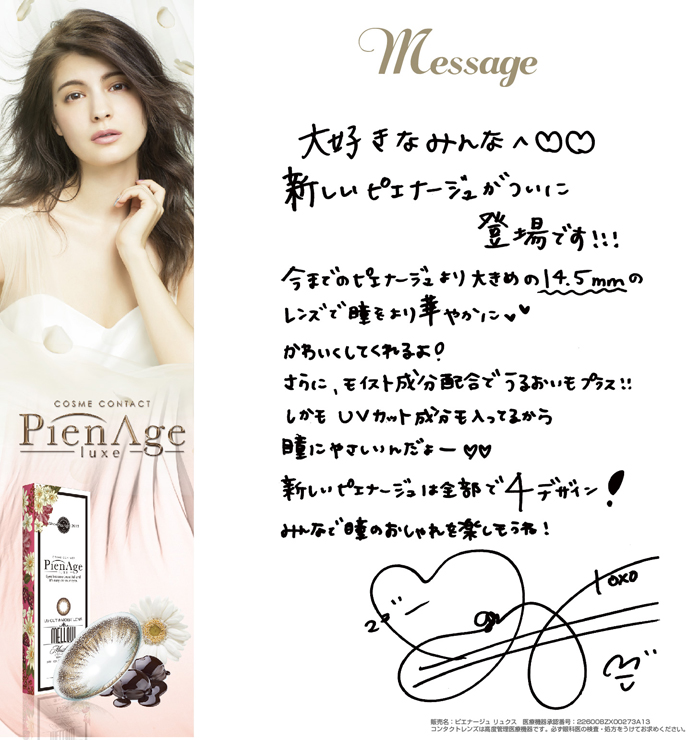 Message
大好きなみんなへ♡♡
新しいピエナージュがついに
登場です!!!
今までのピエナージュより大きめの14.5mmの
レンズで瞳をより華やかに♥♥
かわいくしてくれるよ!
さらに、モイスト成分配合でうるおいもプラス!!
しかもUVカット成分も入ってるから
瞳にやさしいんだよー♥♥
新しいピエナージュは全部で4デザイン!
みんなで瞳のおしゃれを楽しもうね!
xoxo
COSME CONTACT
PienAge
luxe
COSME CONTACT
PienAge
MELLOW
販売名:ピエナージュ リュクス 医療機器承認番号:22600BZX00273A13
コンタクトレンズは高度管理医療機器です。必ず眼科医の検査・処方をうけてお求めください。